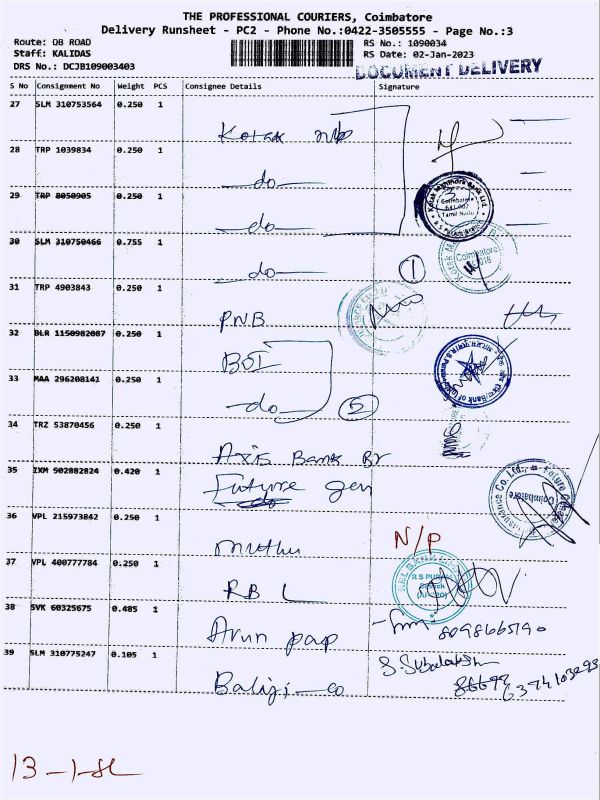 THE PROFESSIONAL COURIERS, Coimbatore
Delivery Runsheet - PC2 - Phone No.:0422-3505555 - Page No.:3
Route: DB ROAD RS No.: 1090034
Staff: KALIDAS RS Date: 02-Jan-2023
DRS No.: DCJB109003403
DOCUMENT DELIVERY
S No Consignment No Weight PCS Consignee Details Signature
27 SLM 310753564 0.250 1
Kotak
28 TRP 1039834 0.250 1
do
29 TRP 8050905 0.250 1
Kotak Mahindra Bank Ltd.
Coimbatore
641 002
Tamil Nadu
do
30 SLM 310750466 0.755 1
Coimbatore
do 1
31 TRP 4903843 0.250 1
PNB
32 BLR 1150982087 0.250 1
BOI
33 MAA 296208141 0.250 1
do 2
34 TRZ 53870456 0.250 1
Axis Bank Br
35 IXM 502882824 0.420 1
Future gen
do
Coimbatore
36 VPL 215973842 0.250 1
muthu N/P
37 VPL 400777784 0.250 1
RBL
R S PURAM
38 SVK 60325675 0.485 1
Arun pap 8098665190
39 SLM 310775247 0.105 1
Baliji co
13